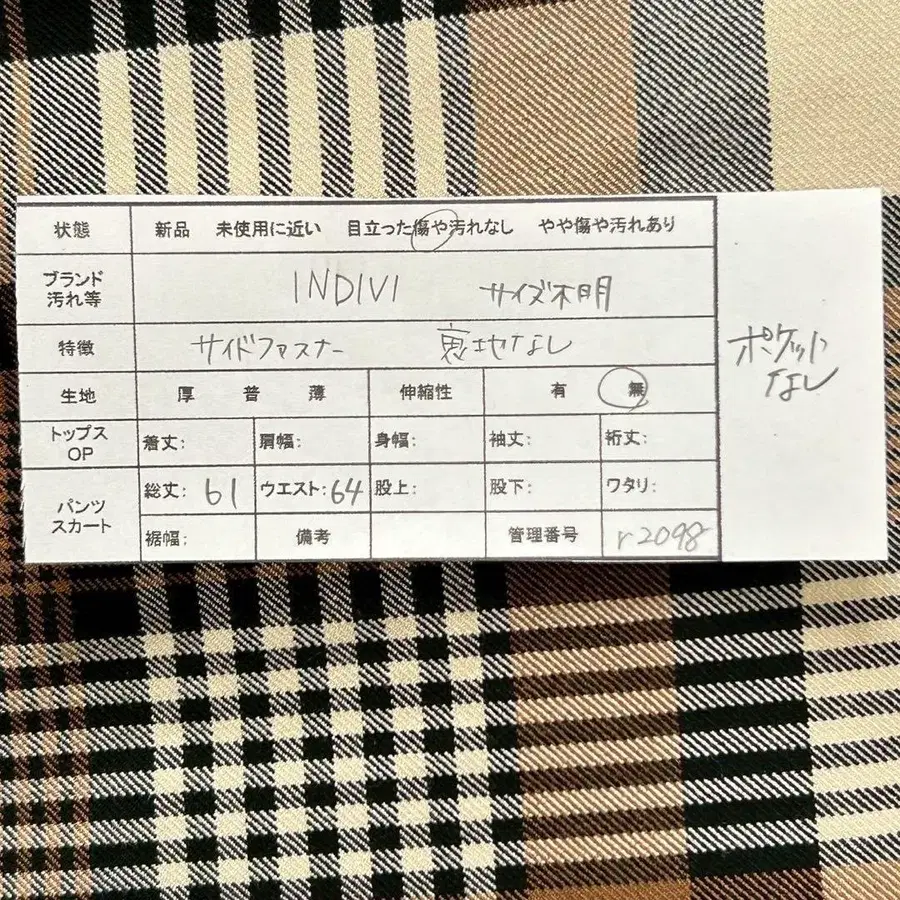 状態 新品 未使用に近い 目立った傷や汚れなし やや傷や汚れあり
ブランド
汚れ等
INDIVI サイズ不明
特徴 サイドファスナー 裏地なし
生地 厚 普 薄 伸縮性 有 無
トップス
OP
着丈: 肩幅: 身幅: 袖丈: 裄丈:
パンツ
スカート
総丈: 61 ウエスト: 64 股上: 股下: ワタリ:
裾幅; 備考 管理番号 r2098
ポケット
なし